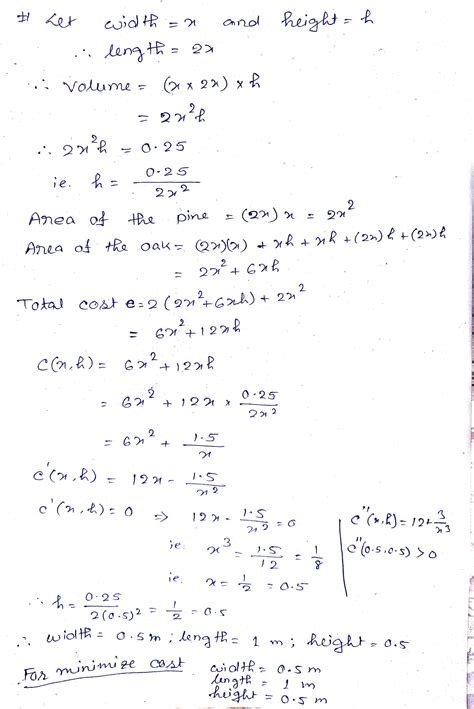 # Let width = x and height = h
∴ length = 2x
∴ Volume = (x × 2x) × h
= 2x²h
∴ 2x²h = 0.25
ie. h = 0.25 / 2x²
Area of the pine = (2x) x = 2x²
Area of the oak = (2x)(x) + xh + xh + (2x)h + (2x)h
= 2x² + 6xh
Total cost c = 2(2x² + 6xh) + 2x²
= 6x² + 12xh
C(x,h) = 6x² + 12xh
= 6x² + 12x × 0.25 / 2x²
= 6x² + 1.5 / x
c'(x,h) = 12x - 1.5 / x²
c'(x,h) = 0 ⇒ 12x - 1.5 / x² = 0
ie. x³ = 1.5 / 12 = 1 / 8
ie. x = 1/2 = 0.5
c''(x,h) = 12 + 3 / x³
c''(0.5, 0.5) > 0
∴ h = 0.25 / 2(0.5)² = 1/2 = 0.5
∴ width = 0.5m ; length = 1 m ; height = 0.5
For minimize cost width = 0.5 m
length = 1 m
height = 0.5 m